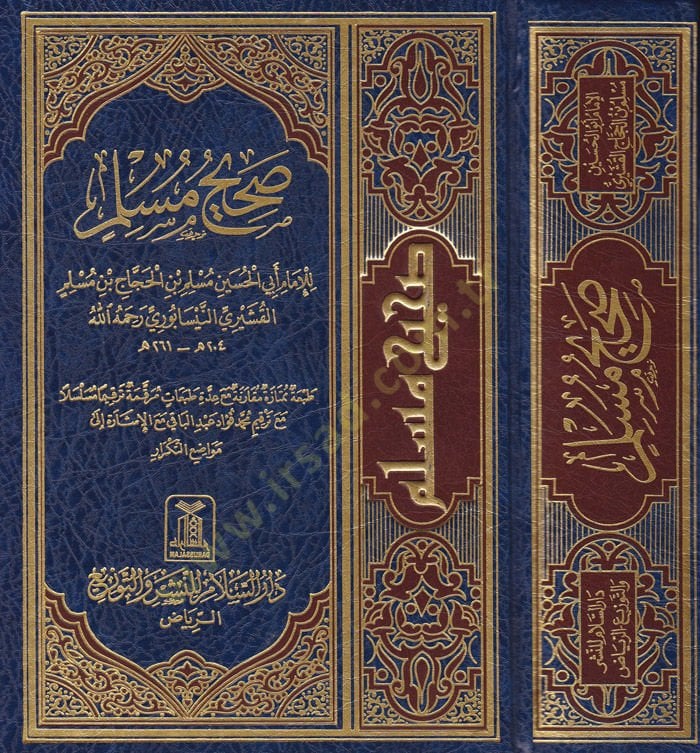 صَحِيحُ مُسْلِمٍ
لِلإِمَامِ أَبِي الْحُسَيْنِ مُسْلِمِ بْنِ الْحَجَّاجِ بْنِ مُسْلِمٍ
الْقُشَيْرِيِّ النَّيْسَابُورِيِّ رَحِمَهُ اللهُ
٢٠٤هـ - ٢٦١هـ
طبعة ممتازة مقارنة مع عدة طبعات ومرقمة ترقيما مسلسلا
مع ترقيم محمد فؤاد عبد الباقي مع الإشارة إلى
مواضع التكرار
دار السلام
DARUSSALAM
دار السلام للنشر والتوزيع
الرياض
صحيح مسلم
الإمام أبو الحسين
مسلم بن الحجاج القشيري
صحيح مسلم
دار السلام للنشر
والتوزيع الرياض
www.irsad.com.tr